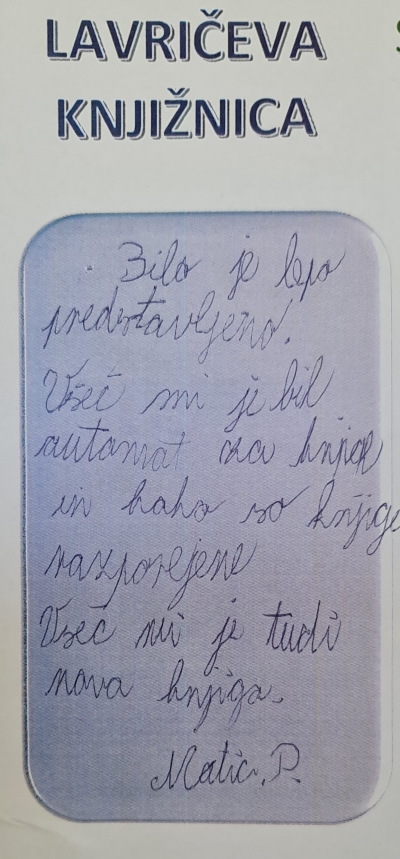 LAVRIČEVA
KNJIŽNICA
Bilo je lepo
predstavljeno.
Všeč mi je bil
automat za knjige
in kako so knjige
razporejene
Všeč mi je tudi
nova knjiga.
Matic, P.